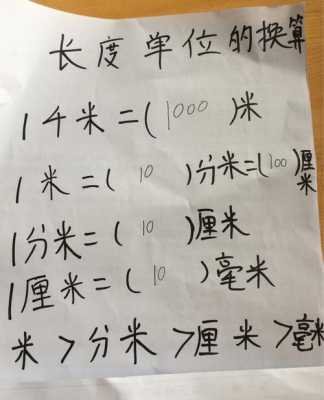 长度单位的换算
1千米=(1000)米
1米=(10)分米=(100)厘米
1分米=(10)厘米
1厘米=(10)毫米
米>分米>厘米>毫米